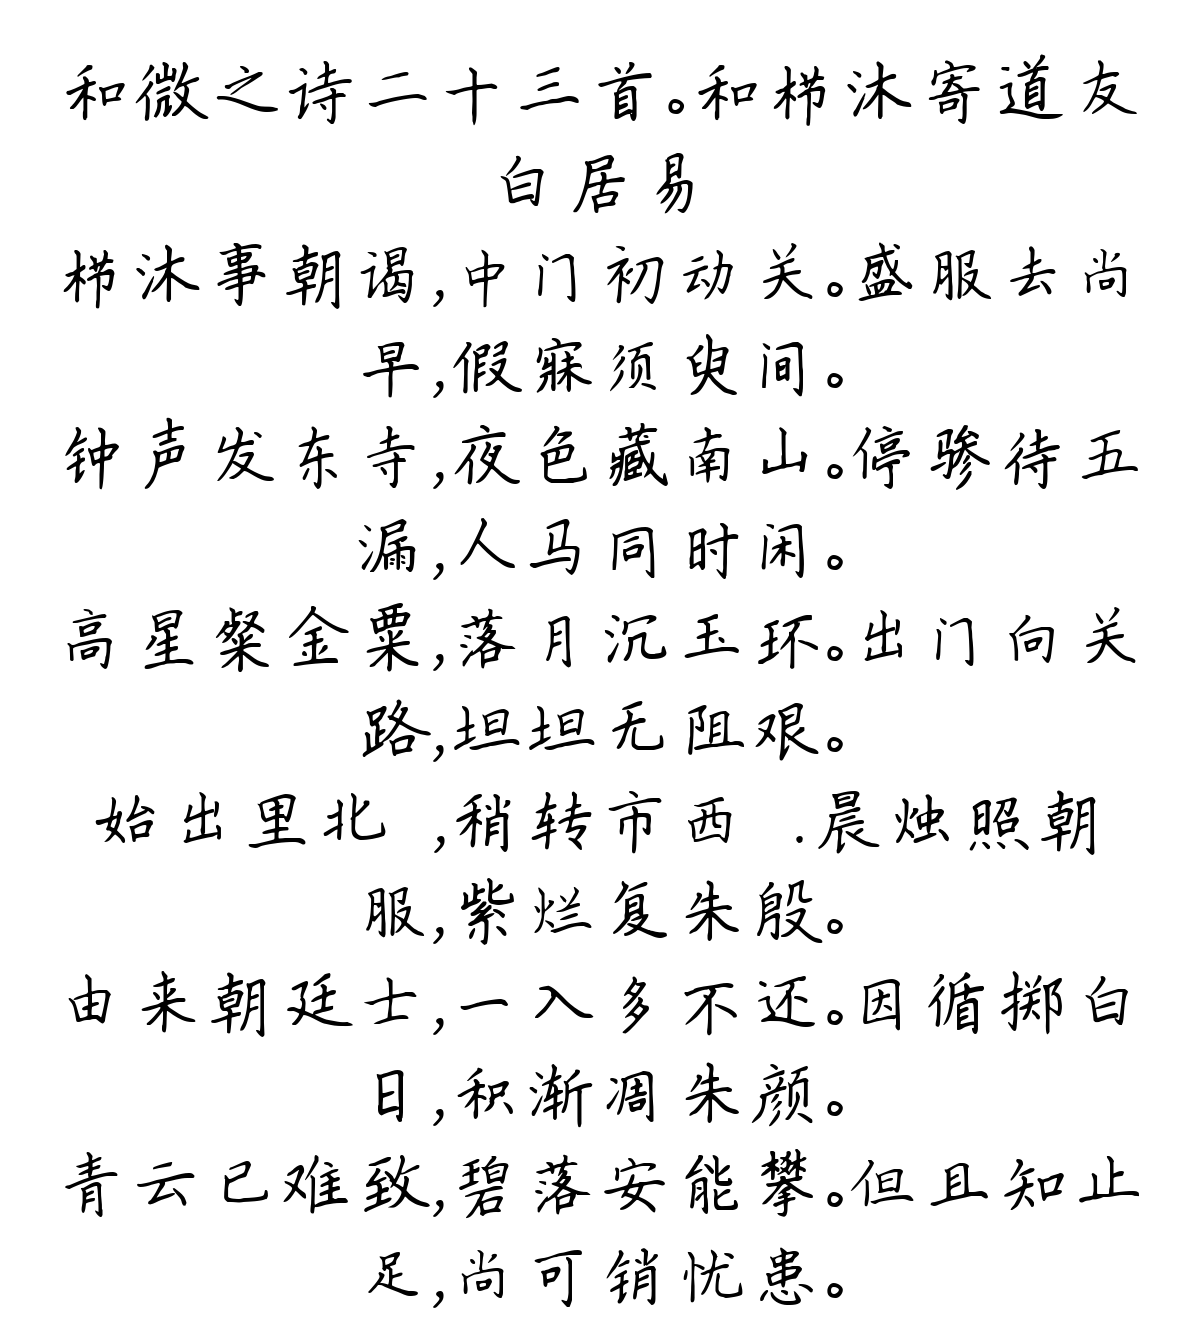 和微之诗二十三首。和栉沐寄道友
白居易
栉沐事朝谒,中门初动关。盛服去尚
早,假寐须臾间。
钟声发东寺,夜色藏南山。停骖待五
漏,人马同时闲。
高星粲金粟,落月沉玉环。出门向关
路,坦坦无阻艰。
始出里北 ,稍转市西 .晨烛照朝
服,紫烂复朱殷。
由来朝廷士,一入多不还。因循掷白
日,积渐凋朱颜。
青云已难致,碧落安能攀。但且知止
足,尚可销忧患。